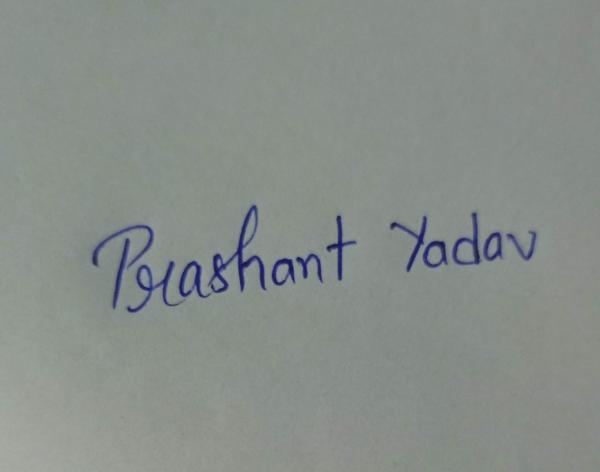 Prashant Yadav